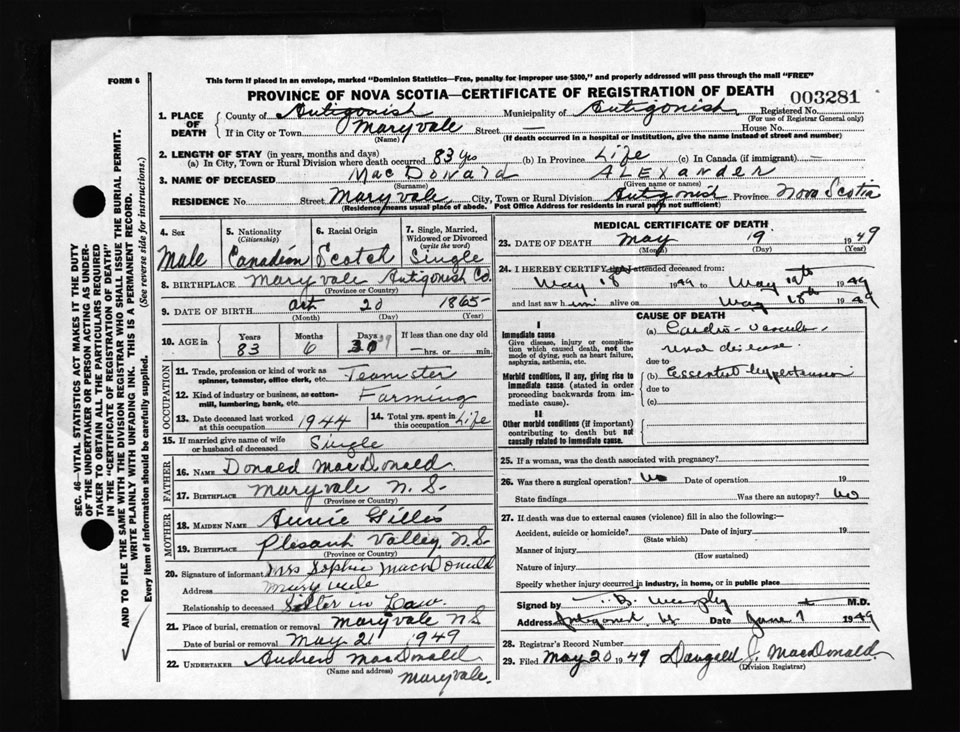 FORM 6
This form if placed in an envelope, marked "Dominion Statistics—Free, penalty for improper use $300," and properly addressed will pass through the mail "FREE"
PROVINCE OF NOVA SCOTIA—CERTIFICATE OF REGISTRATION OF DEATH
003281
1. PLACE OF DEATH
County of Antigonish Municipality of Antigonish Registered No.
(For use of Registrar General only)
If in City or Town Maryvale Street — House No.
(Name) (If death occurred in a hospital or institution, give the name instead of street and number)
2. LENGTH OF STAY (in years, months and days)
(a) In City, Town or Rural Division where death occurred 83 yrs (b) In Province Life (c) In Canada (if immigrant) —
3. NAME OF DECEASED MacDonald ALExander
(Surname) (Given name or names)
RESIDENCE No. Street Maryvale City, Town or Rural Division Antigonish Province Nova Scotia
(Residence means usual place of abode. Post Office Address for residents in rural parts not sufficient)
4. Sex Male
5. Nationality (Citizenship) Canadian
6. Racial Origin Scotch
7. Single, Married, Widowed or Divorced (write the word) Single
8. BIRTHPLACE Maryvale Antigonish Co.
(Province or Country)
9. DATE OF BIRTH Oct. 20 1865
(Month) (Day) (Year)
10. AGE in Years Months Days If less than one day old
83 6 hrs. or min.
OCCUPATION
11. Trade, profession or kind of work as spinner, teamster, office clerk, etc. Teamster
12. Kind of industry or business, as cotton-mill, lumbering, bank, etc. Farming
13. Date deceased last worked at this occupation 1944
14. Total yrs. spent in this occupation Life
15. If married give name of wife or husband of deceased Single
FATHER
16. NAME Donald MacDonald
17. BIRTHPLACE Maryvale N.S.
(Province or Country)
MOTHER
18. MAIDEN NAME Annie Gillis
19. BIRTHPLACE Plesant Valley, N.S.
(Province or Country)
20. Signature of informant Mrs Sophie MacDonald
Address Maryvale
Relationship to deceased Sister in Law.
21. Place of burial, cremation or removal Maryvale NS
Date of burial or removal May 21 1949
22. UNDERTAKER Andrew MacDonald
(Name and address) Maryvale.
MEDICAL CERTIFICATE OF DEATH
23. DATE OF DEATH May 19 1949
(Month) (Day) (Year)
24. I HEREBY CERTIFY that I attended deceased from:
May 18 1949 to May 19th 1949
and last saw him alive on May 18th 1949
CAUSE OF DEATH
I
Immediate cause
Give disease, injury or complication which caused death, not the mode of dying, such as heart failure, asphyxia, asthenia, etc.
(a) Cardio-vascular renal disease
due to
Morbid conditions, if any, giving rise to immediate cause (stated in order proceeding backwards from immediate cause).
(b) Essential hypertension
due to
(c)
II
Other morbid conditions (if important) contributing to death but not causally related to immediate cause.
25. If a woman, was the death associated with pregnancy?
26. Was there a surgical operation? No Date of operation 19
State findings Was there an autopsy? No
27. If death was due to external causes (violence) fill in also the following:—
Accident, suicide or homicide? Date of injury 19
(State which)
Manner of injury
(How sustained)
Nature of injury
Specify whether injury occurred in industry, in home, or in public place
Signed by B. Murphy M.D.
Address Antigonish Date June 1st 1949
28. Registrar's Record Number
29. Filed May 20 1949 Dougald J. MacDonald.
(Division Registrar)
SEC. 46—VITAL STATISTICS ACT MAKES IT THE DUTY
OF THE UNDERTAKER OR PERSON ACTING AS UNDER-
TAKER TO OBTAIN ALL THE PARTICULARS REQUIRED
IN THE "CERTIFICATE OF REGISTRATION OF DEATH"
AND TO FILE THE SAME WITH THE DIVISION REGISTRAR WHO SHALL ISSUE THE BURIAL PERMIT.
WRITE PLAINLY WITH UNFADING INK. THIS IS A PERMANENT RECORD.
Every item of information should be carefully supplied. (See reverse side for instructions.)